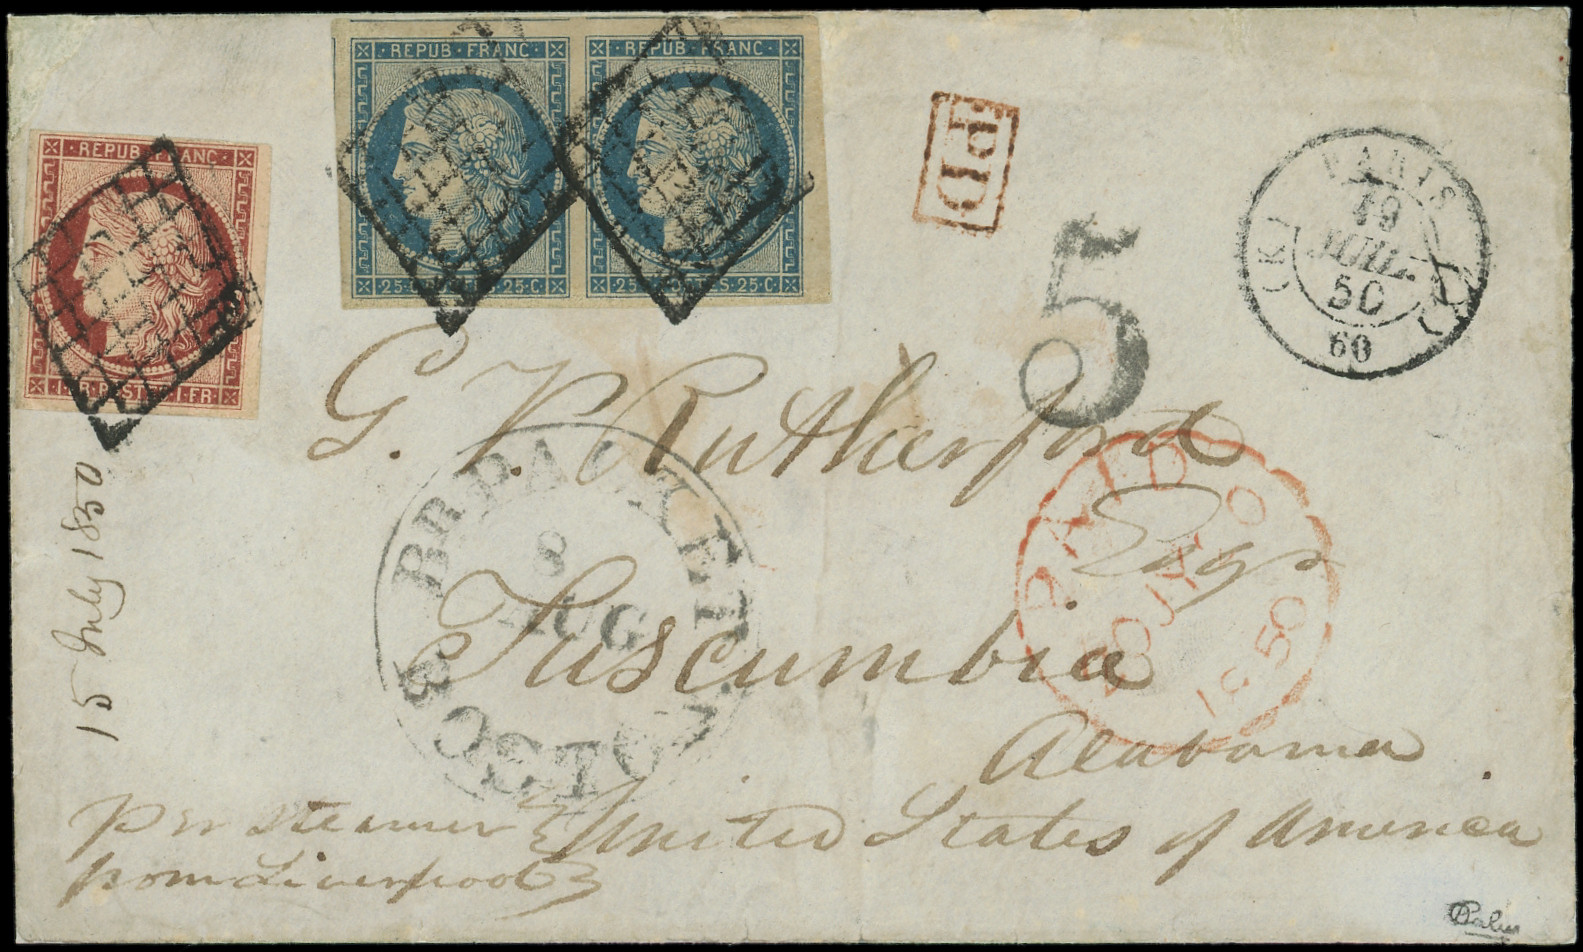 REPUB·FRANC·
REPUB·FRANC·
25·C 25·C·
25·C 25·C·
REPUB·FRANC·
1·FR·POST 1·FR·
PD
PARIS
19
JUIL.
50
(K)
60
5
G. P. Rutherford
Esqr
Tuscumbia
Alabama
United States of America
per steamer
from Liverpool
15 July 1850
BR. PACKET
8
AUG
BOSTON
PAID
20 JY 20
1850